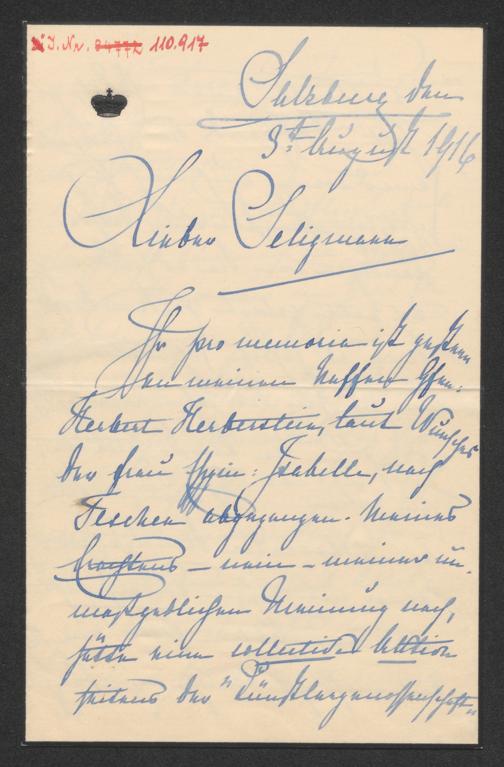 I. Nr. 110.917
Salzburg den
3ten August 1916
Lieber Seligmann
Ihr pro memoria ist gestern
an meinen Neffen Gfen:
Herbert Herberstein, laut Wunsches
der Frau Ehgin: Isabelle, nach
Teschen abgegangen. Meines
Erachtens – nein – meiner un-
maßgeblichen Meinung nach,
hätte eine collective Aktion
seitens der "Künstlergenossenschaft"